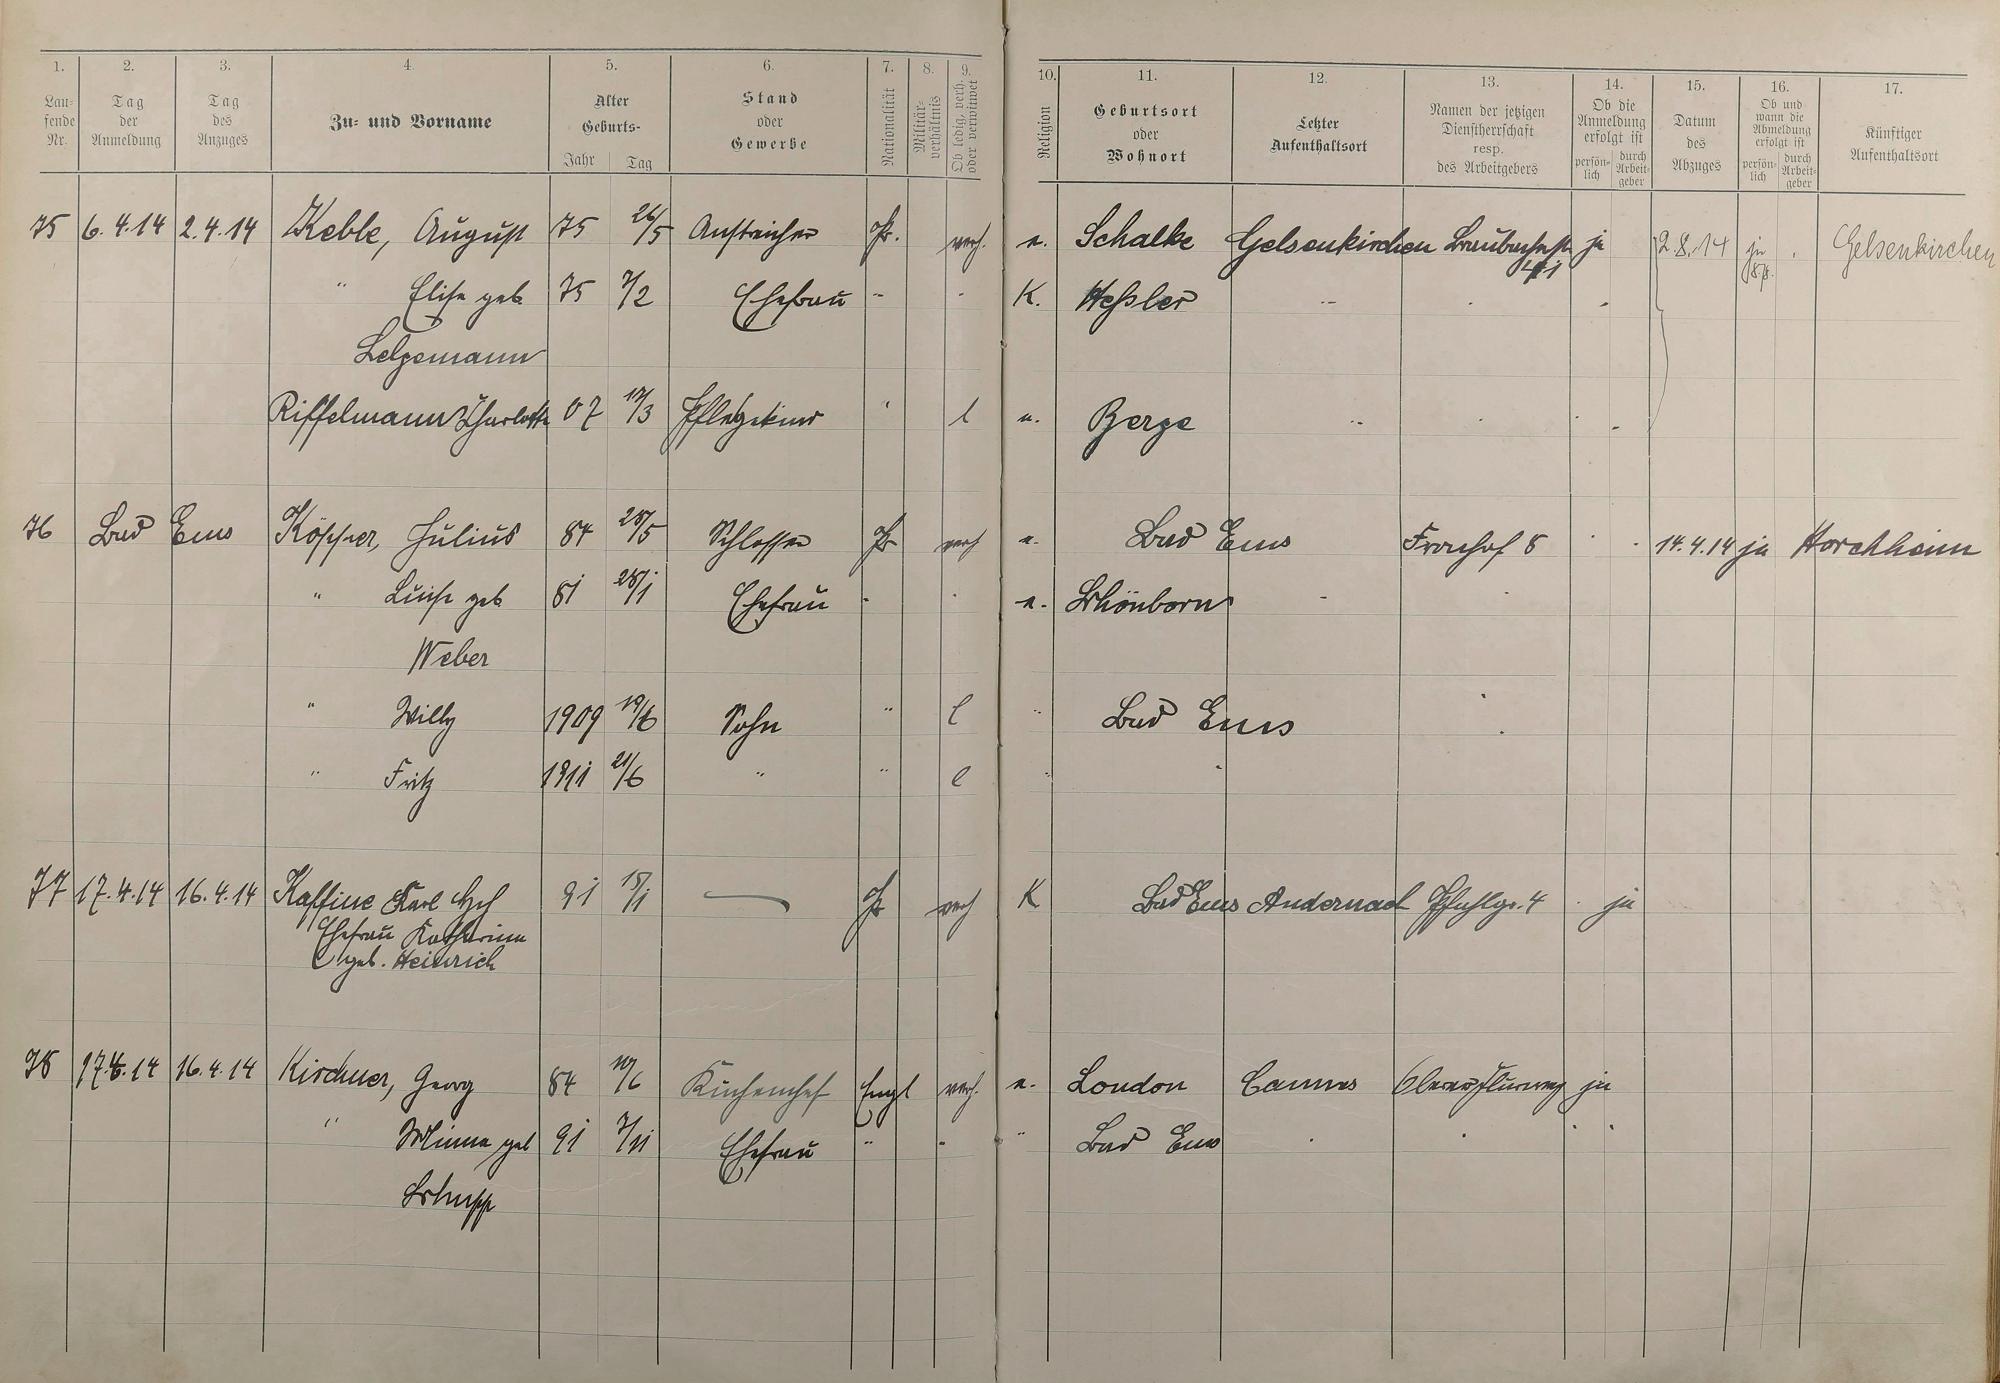 1. 2. 3. 4. 5. 6. 7. 8. 9. 10. 11. 12. 13. 14. 15. 16. 17.
Lau-
fende
Nr.
Tag
der
Anmeldung
Tag
des
Anzuges
Zu- und Vorname
Alter
Geburts-
Jahr Tag
Stand
oder
Gewerbe
Nationalität
Militär-
verhältnis
Ob ledig, verh.
oder verwitwet
Religion
Geburtsort
oder
Wohnort
Letzter
Aufenthaltsort
Namen der jetzigen
Dienstherrschaft
resp.
des Arbeitgebers
Ob die
Anmeldung
erfolgt ist
persön-
lich
durch
Arbeit-
geber
Datum
des
Abzuges
Ob und
wann die
Abmeldung
erfolgt ist
persön-
lich
durch
Arbeit-
geber
Künftiger
Aufenthaltsort
75 6.4.14 2.4.14 Keble, August 75 26/5 Anstreicher Pr. verh. e. Schalke Gelsenkirchen ja 2.8.14 ja Gelsenkirchen
" Elise geb. 75 7/2 Ehefrau K. Heßler
Lelgemann
Riffelmann Charlotte 07 17/3 Pflegekind " l e. Berge
76 Bad Ems Julius 84 28/5 Schlosser Pr verh e. Bad Ems Fronhof 8 14.4.14 ja Horchheim
" Luise geb. 81 28/1 Ehefrau e. Schönborn
Weber
" Willy 1909 19/6 Sohn " l " Bad Ems
" Fritz 1911 21/6 " " l "
77 17.4.14 16.4.14 Kaffine Karl 91 15/1 Pr verh K Bad Ems Andernach Pfahlgr. 4 ja
Ehefrau Katharina
geb. Heinrich
78 17.4.14 16.4.14 Kirchner, Georg 84 10/6 Küchenchef Engl verh. e. London Cannes ja
" Minna geb 91 7/11 Ehefrau " " Bad Ems
Schupp